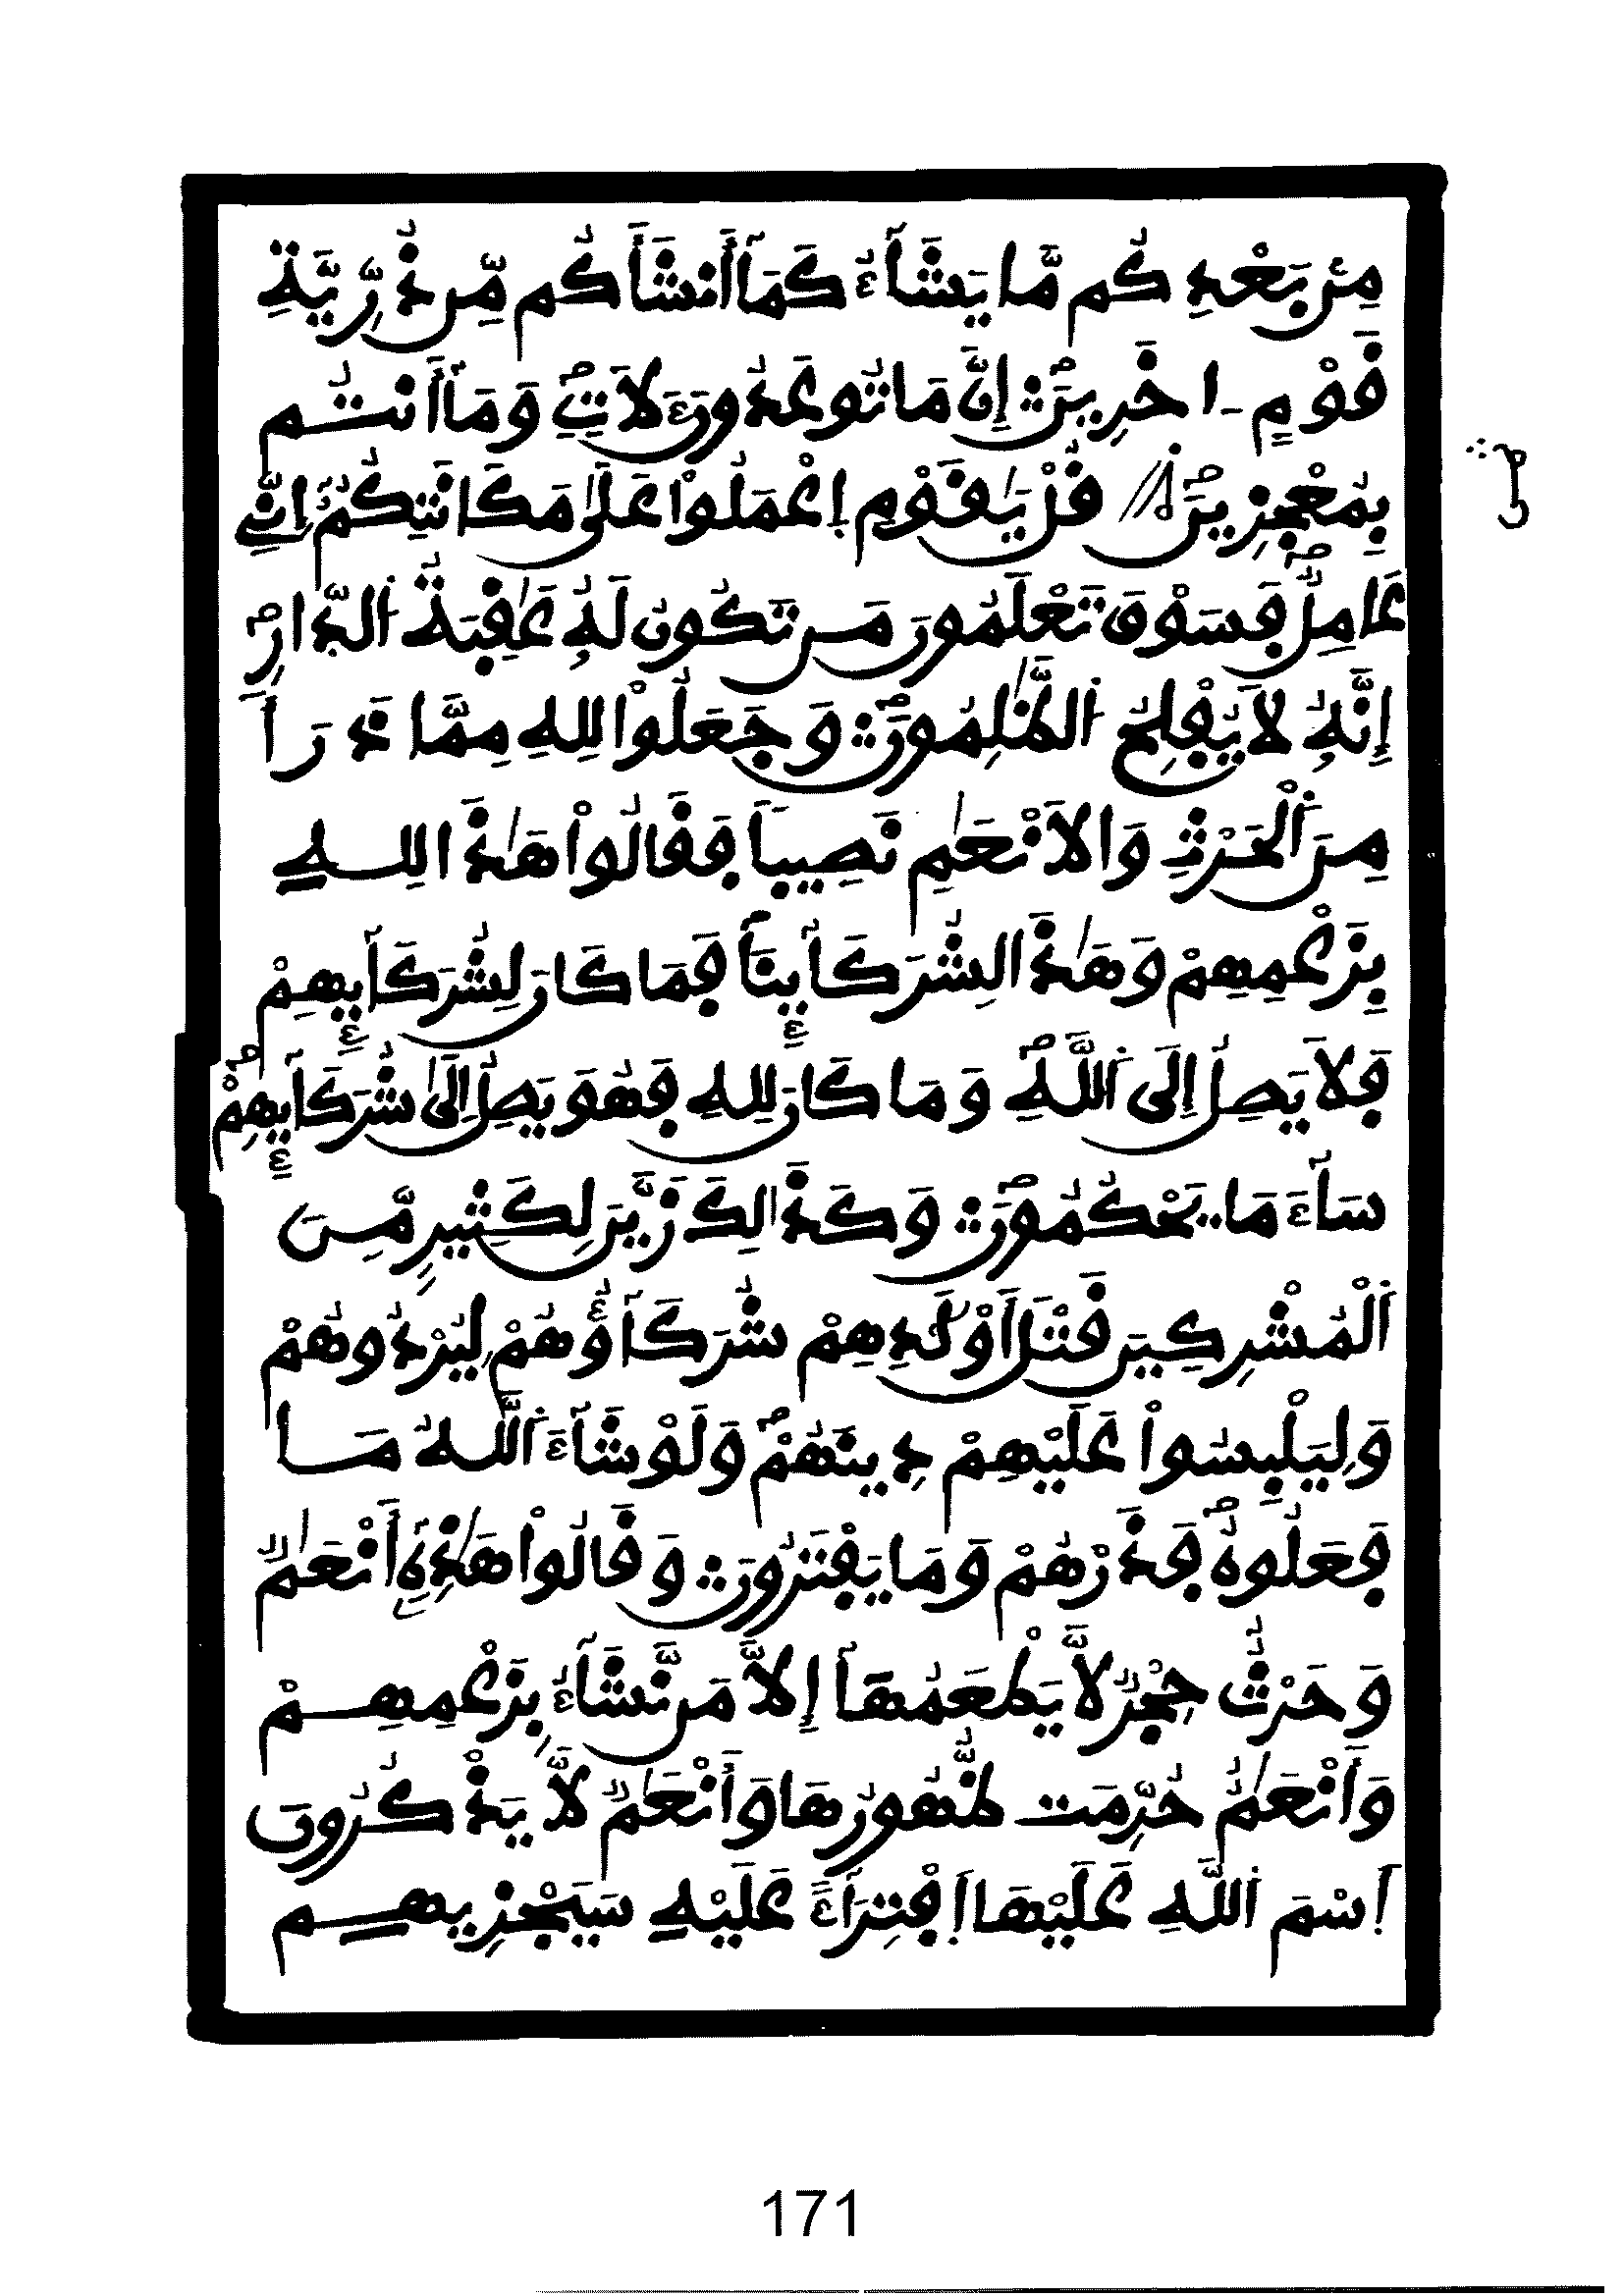 مِنۢ بَعْدِكُم مَّا يَشَآءُ كَمَآ أَنشَأَكُم مِّن ذُرِّيَّةِ
قَوْمٍ ـ اخَرِينَ ۞ إِنَّ مَا تُوعَدُونَ ءَلَاتٖ وَمَآ أَنتُم
بِمُعْجِزِينَ قُلْ يَٰقَوْمِ اِعْمَلُواْ عَلَىٰ مَكَانَتِكُمُۥٓ إِنِّے
عَامِلٞ فَسَوْفَ تَعْلَمُونَ مَن تَكُونُ لَهُۥ عَٰقِبَةُ اُ۬لدّ۪ارِ
إِنَّهُۥ لَا يُفْلِحُ اُ۬لظَّٰلِمُونَ ۞ وَجَعَلُواْ لِلهِ مِمَّا ذَرَأَ
مِنَ اَ۬لْحَرْثِ وَالَانْعَٰمِ نَصِيباٗ فَقَالُواْ هَٰذَا لِلهِ
بِزَعْمِهِمْ وَهَٰذَا لِشُرَكَآئِنَا فَمَا كَانَ لِشُرَكَآئِهِمْ
فَلَا يَصِلُ إِلَى اَ۬للَّهِ وَمَا كَانَ لِلهِ فَهُوَ يَصِلُ إِلَىٰ شُرَكَآئِهِمْ
سَآءَ مَا يَحْكُمُونَ ۞ وَكَذَالِكَ زَيَّنَ لِكَثِيرٖ مِّنَ
اَ۬لْمُشْرِكِينَ قَتْلَ أَوْلَٰدِهِمْ شُرَكَآؤُهُمْ لِيُرْدُوهُمْ
وَلِيَلْبِسُواْ عَلَيْهِمْ دِينَهُمْ وَلَوْ شَآءَ اَ۬للَّهُ مَا
فَعَلُوهُ فَذَرْهُمْ وَمَا يَفْتَرُونَ ۞ وَقَالُواْ هَٰذِهِۦٓ أَنْعَٰمٞ
وَحَرْثٌ حِجْرٞ لَّا يَطْعَمُهَآ إِلَّا مَن نَّشَآءُ بِزَعْمِهِمْ
وَأَنْعَٰمٌ حُرِّمَتْ ظُهُورُهَا وَأَنْعَٰمٞ لَّا يَذْكُرُونَ
اَ۪سْمَ اَ۬للَّهِ عَلَيْهَا اَ۪فْتِرَآءً عَلَيْهِ سَيَجْزِيهِم
171